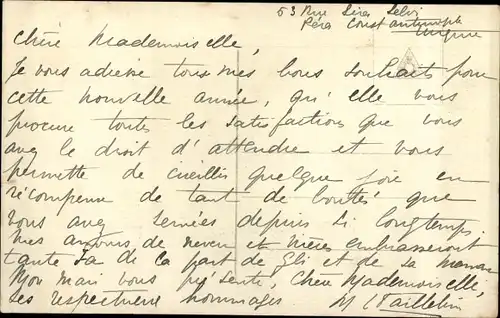 53 Rue Sira Selvi
Péra Constantinople
Turquie
Chère Mademoiselle,
Je vous adresse tous mes bons souhaits pour
cette nouvelle année, qu'elle vous
procure toutes les satisfactions que vous
avez le droit d'attendre et vous
permette de cueillir quelque joie en
récompense de tant de bontés que
vous avez semées depuis si longtemps.
Mes amours de neveu et nièces embrasseront
tante de la part de et de sa maman
Mon mari vous présente, Chère Mademoiselle,
ses respectueux hommages